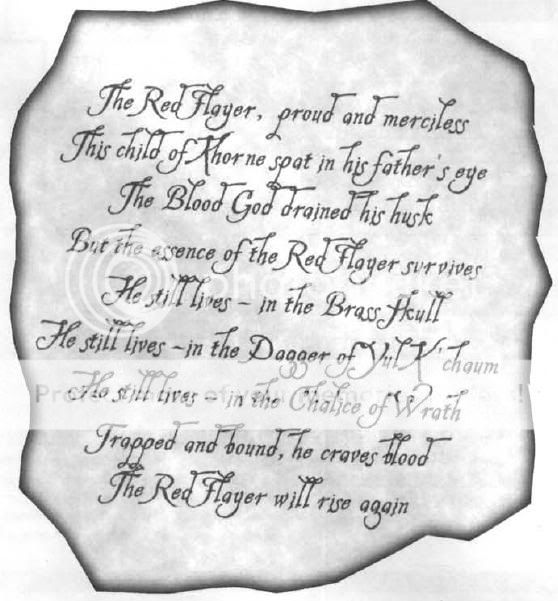 The Red Flayer, proud and merciless
This child of Khorne spat in his father's eye
The Blood God drained his husk
But the essence of the Red Flayer survives
He still lives – in the Brass Skull
He still lives – in the Dagger of Yul X'chaum
He still lives – in the Chalice of Wrath
Trapped and bound, he craves blood
The Red Flayer will rise again